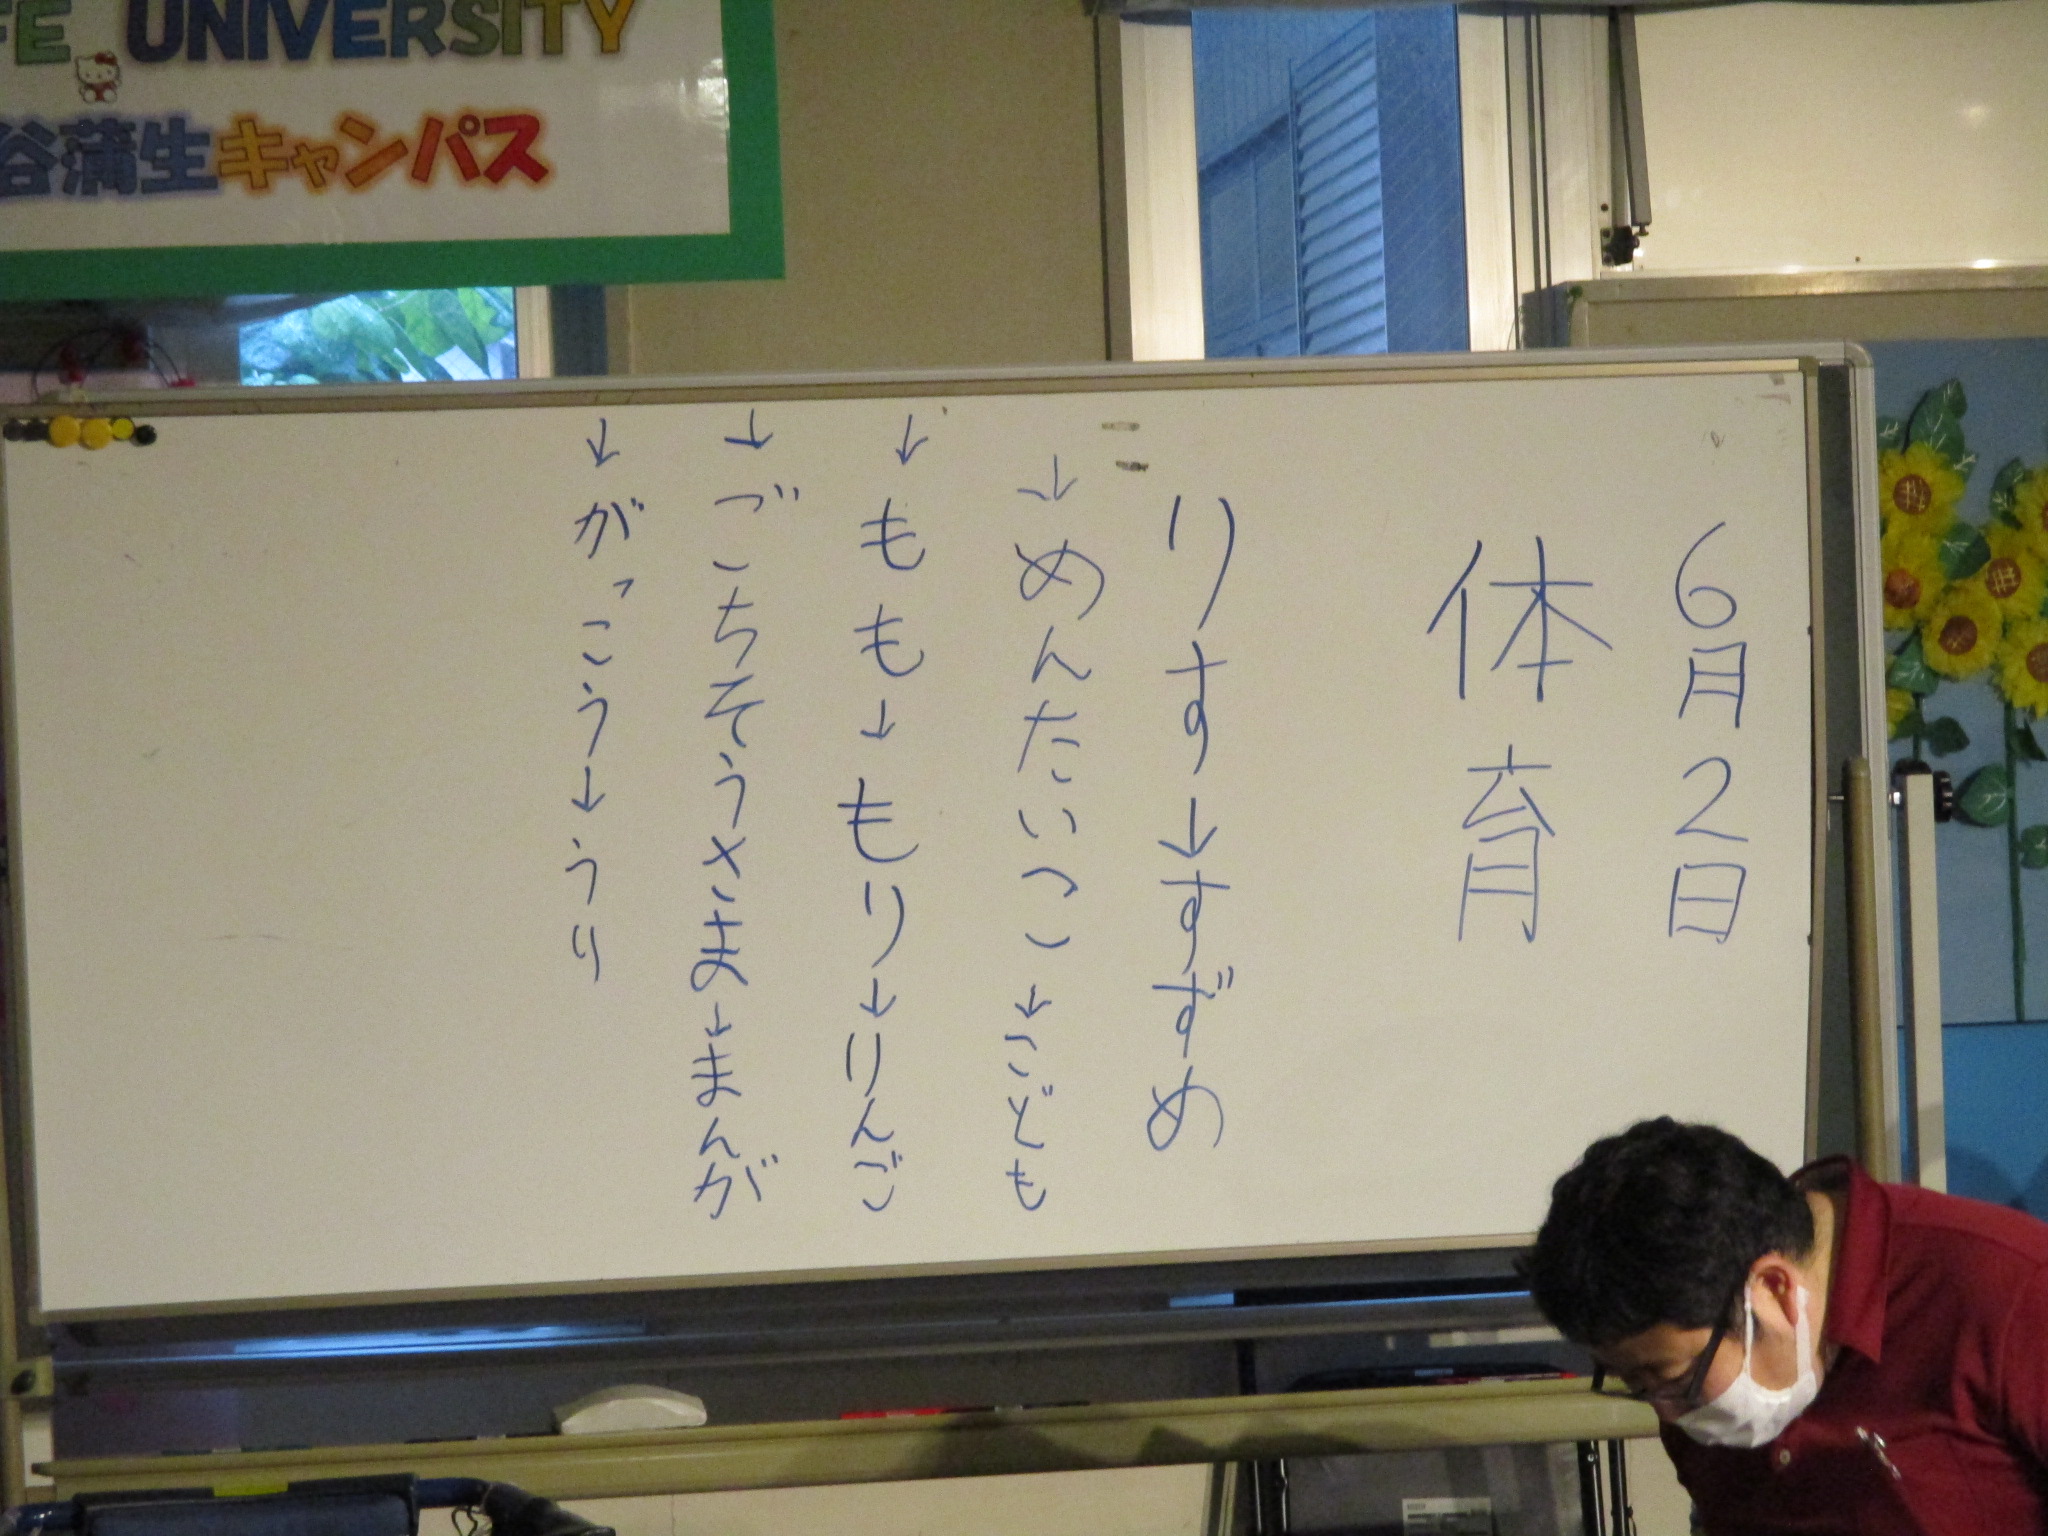 FE UNIVERSITY
谷蒲生キャンパス
6月2日
体育
りす→すずめ
→めんたいつこ→こども
→もも→もり→りんご
→ごちそうさま→まんが
→がっこう→うり